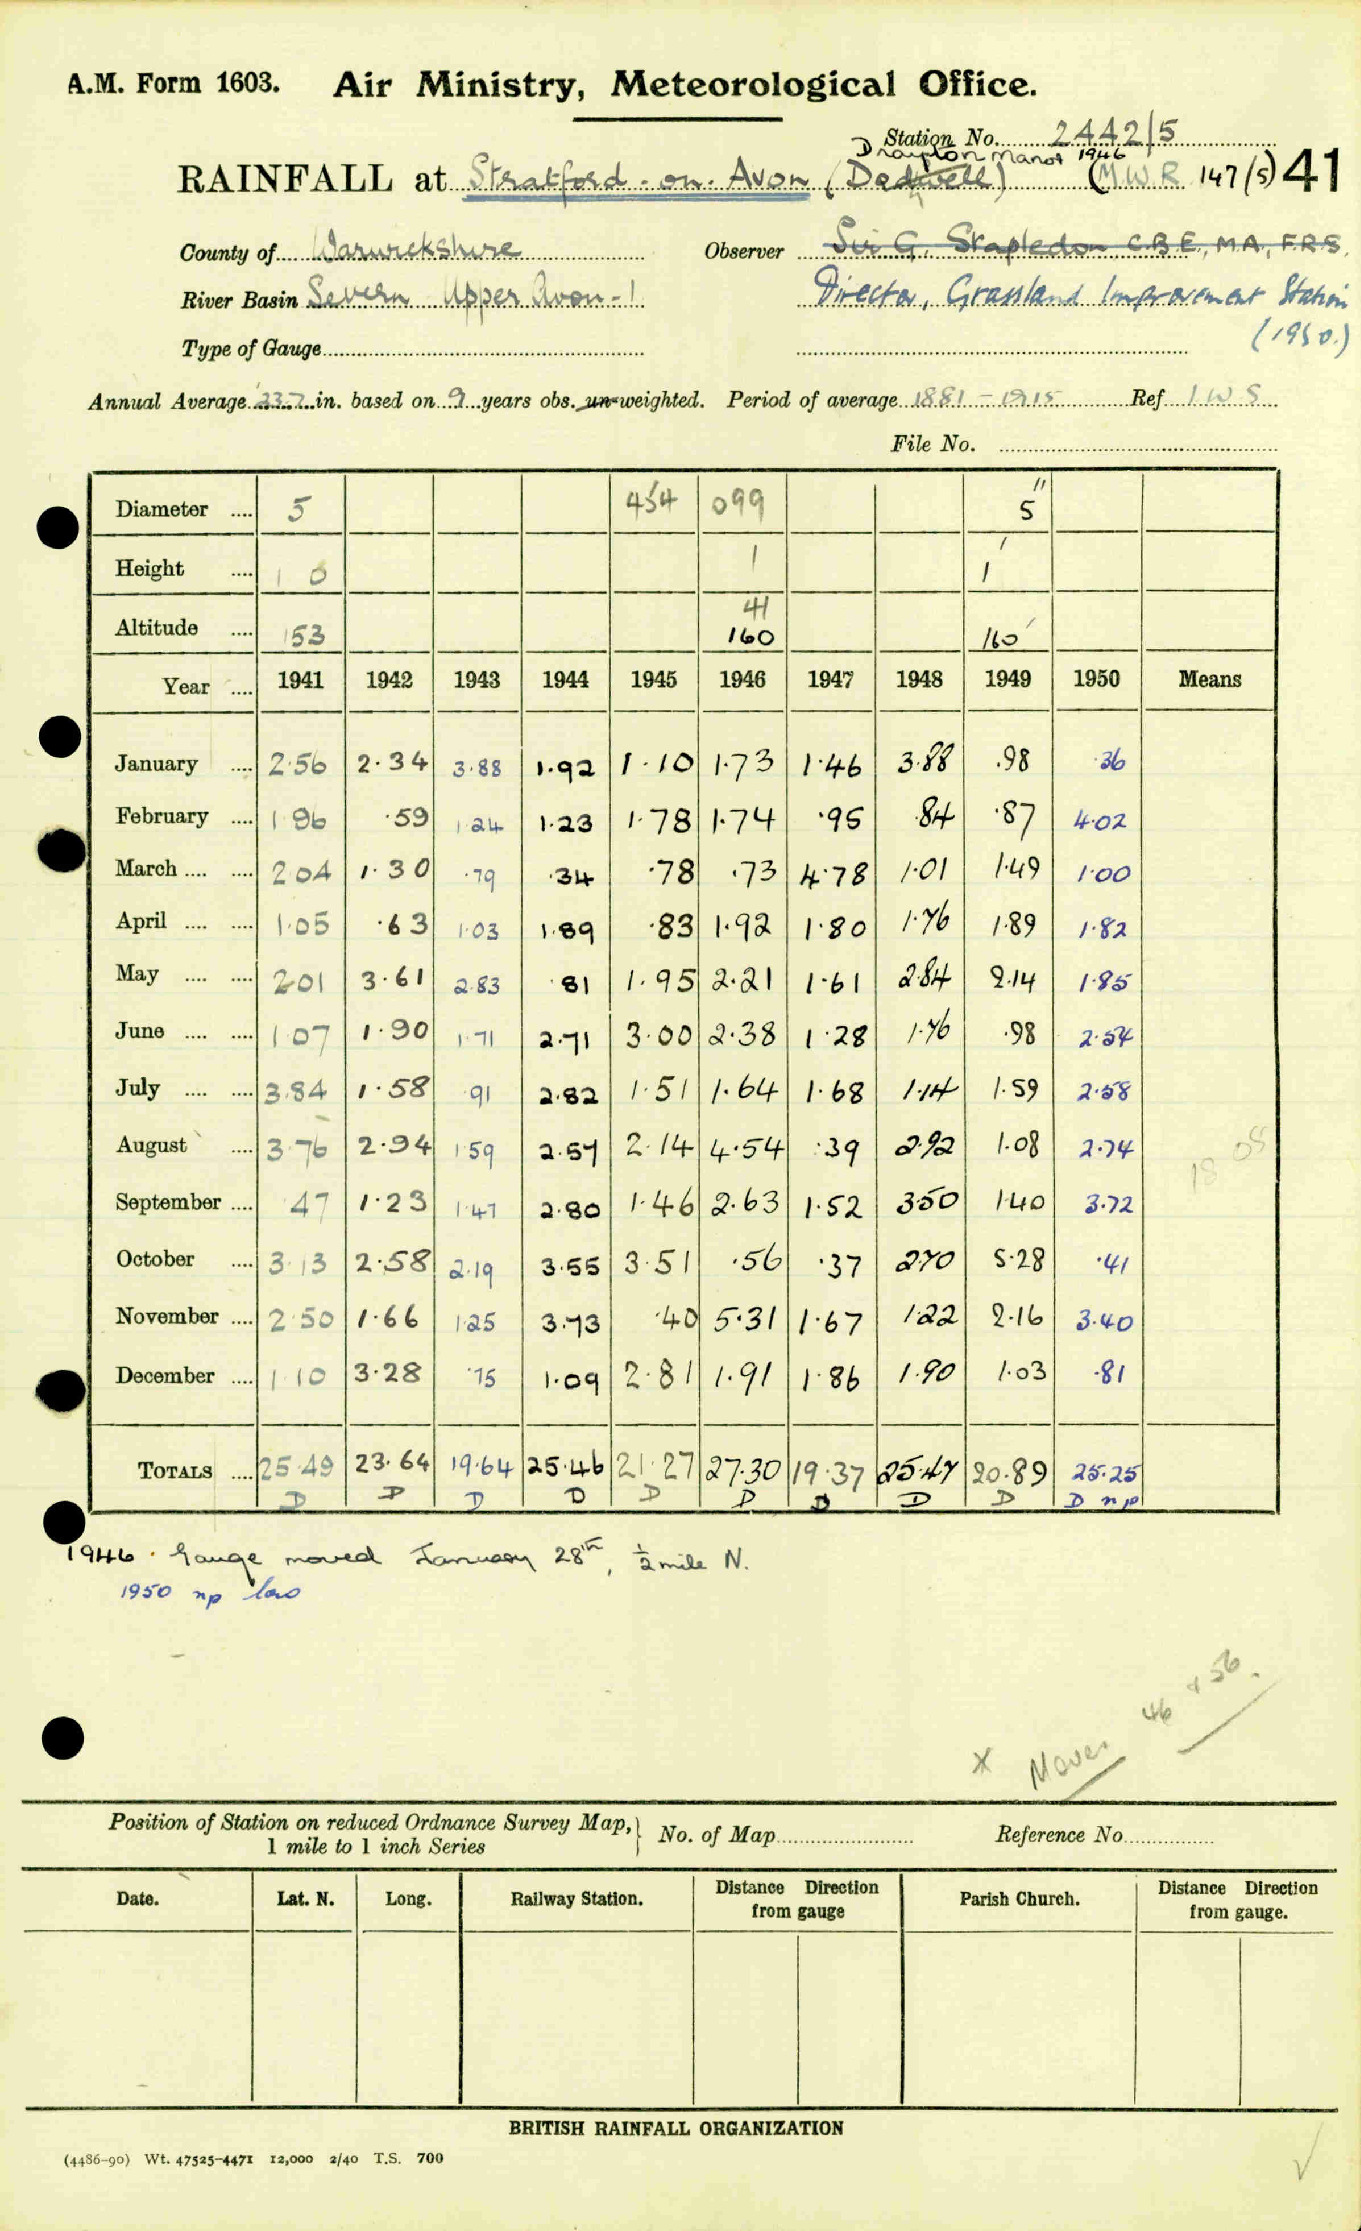 A.M. Form 1603. Air Ministry, Meteorological Office.
Station No. 2442/5
Drayton Manor 1946
RAINFALL at Stratford-on-Avon (Dodwell) (M.W.R. 147/(5) 41
County of Warwickshire Observer Sir G. Stapledon C.B.E., M.A., F.R.S.
River Basin Severn Upper Avon-1 Director, Grassland Improvement Station
(1950.)
Type of Gauge
Annual Average 23.7 in. based on 9 years obs. un-weighted. Period of average 1881-1915 Ref. I W S
File No.
Diameter .... 5 454 099 5"
Height .... 1 0 1 1'
41
Altitude .... 153 160 160'
Year .... 1941 1942 1943 1944 1945 1946 1947 1948 1949 1950 Means
January .... 2.56 2.34 3.88 1.92 1.10 1.73 1.46 3.88 .98 .36
February .... 1.96 .59 1.24 1.23 1.78 1.74 .95 .84 .87 4.02
March .... .... 2.04 1.30 .79 .34 .78 .73 4.78 1.01 1.49 1.00
April .... .... 1.05 .63 1.03 1.89 .83 1.92 1.80 1.76 1.89 1.82
May .... .... 2.01 3.61 2.83 .81 1.95 2.21 1.61 2.84 2.14 1.85
June .... .... 1.07 1.90 1.71 2.71 3.00 2.38 1.28 1.76 .98 2.54
July .... .... 3.84 1.58 .91 2.82 1.51 1.64 1.68 1.14 1.59 2.58
August .... 3.76 2.94 1.59 2.57 2.14 4.54 .39 2.92 1.08 2.74
18 05
September .... .47 1.23 1.47 2.80 1.46 2.63 1.52 3.50 1.40 3.72
October .... 3.13 2.58 2.19 3.55 3.51 .56 .37 2.70 5.28 .41
November .... 2.50 1.66 1.25 3.73 .40 5.31 1.67 1.22 2.16 3.40
December .... 1.10 3.28 .75 1.09 2.81 1.91 1.86 1.90 1.03 .81
TOTALS .... 25.49 23.64 19.64 25.46 21.27 27.30 19.37 25.47 20.89 25.25
D D D D D D D D D D np
1946. Gauge moved January 28th, ½ mile N.
1950 np low
* Moves 46 + 56.
Position of Station on reduced Ordnance Survey Map, } No. of Map Reference No
1 mile to 1 inch Series
Date. Lat. N. Long. Railway Station. Distance Direction from gauge Parish Church. Distance Direction from gauge.
BRITISH RAINFALL ORGANIZATION
(4486-90) Wt. 47525-4471 12,000 2/40 T.S. 700